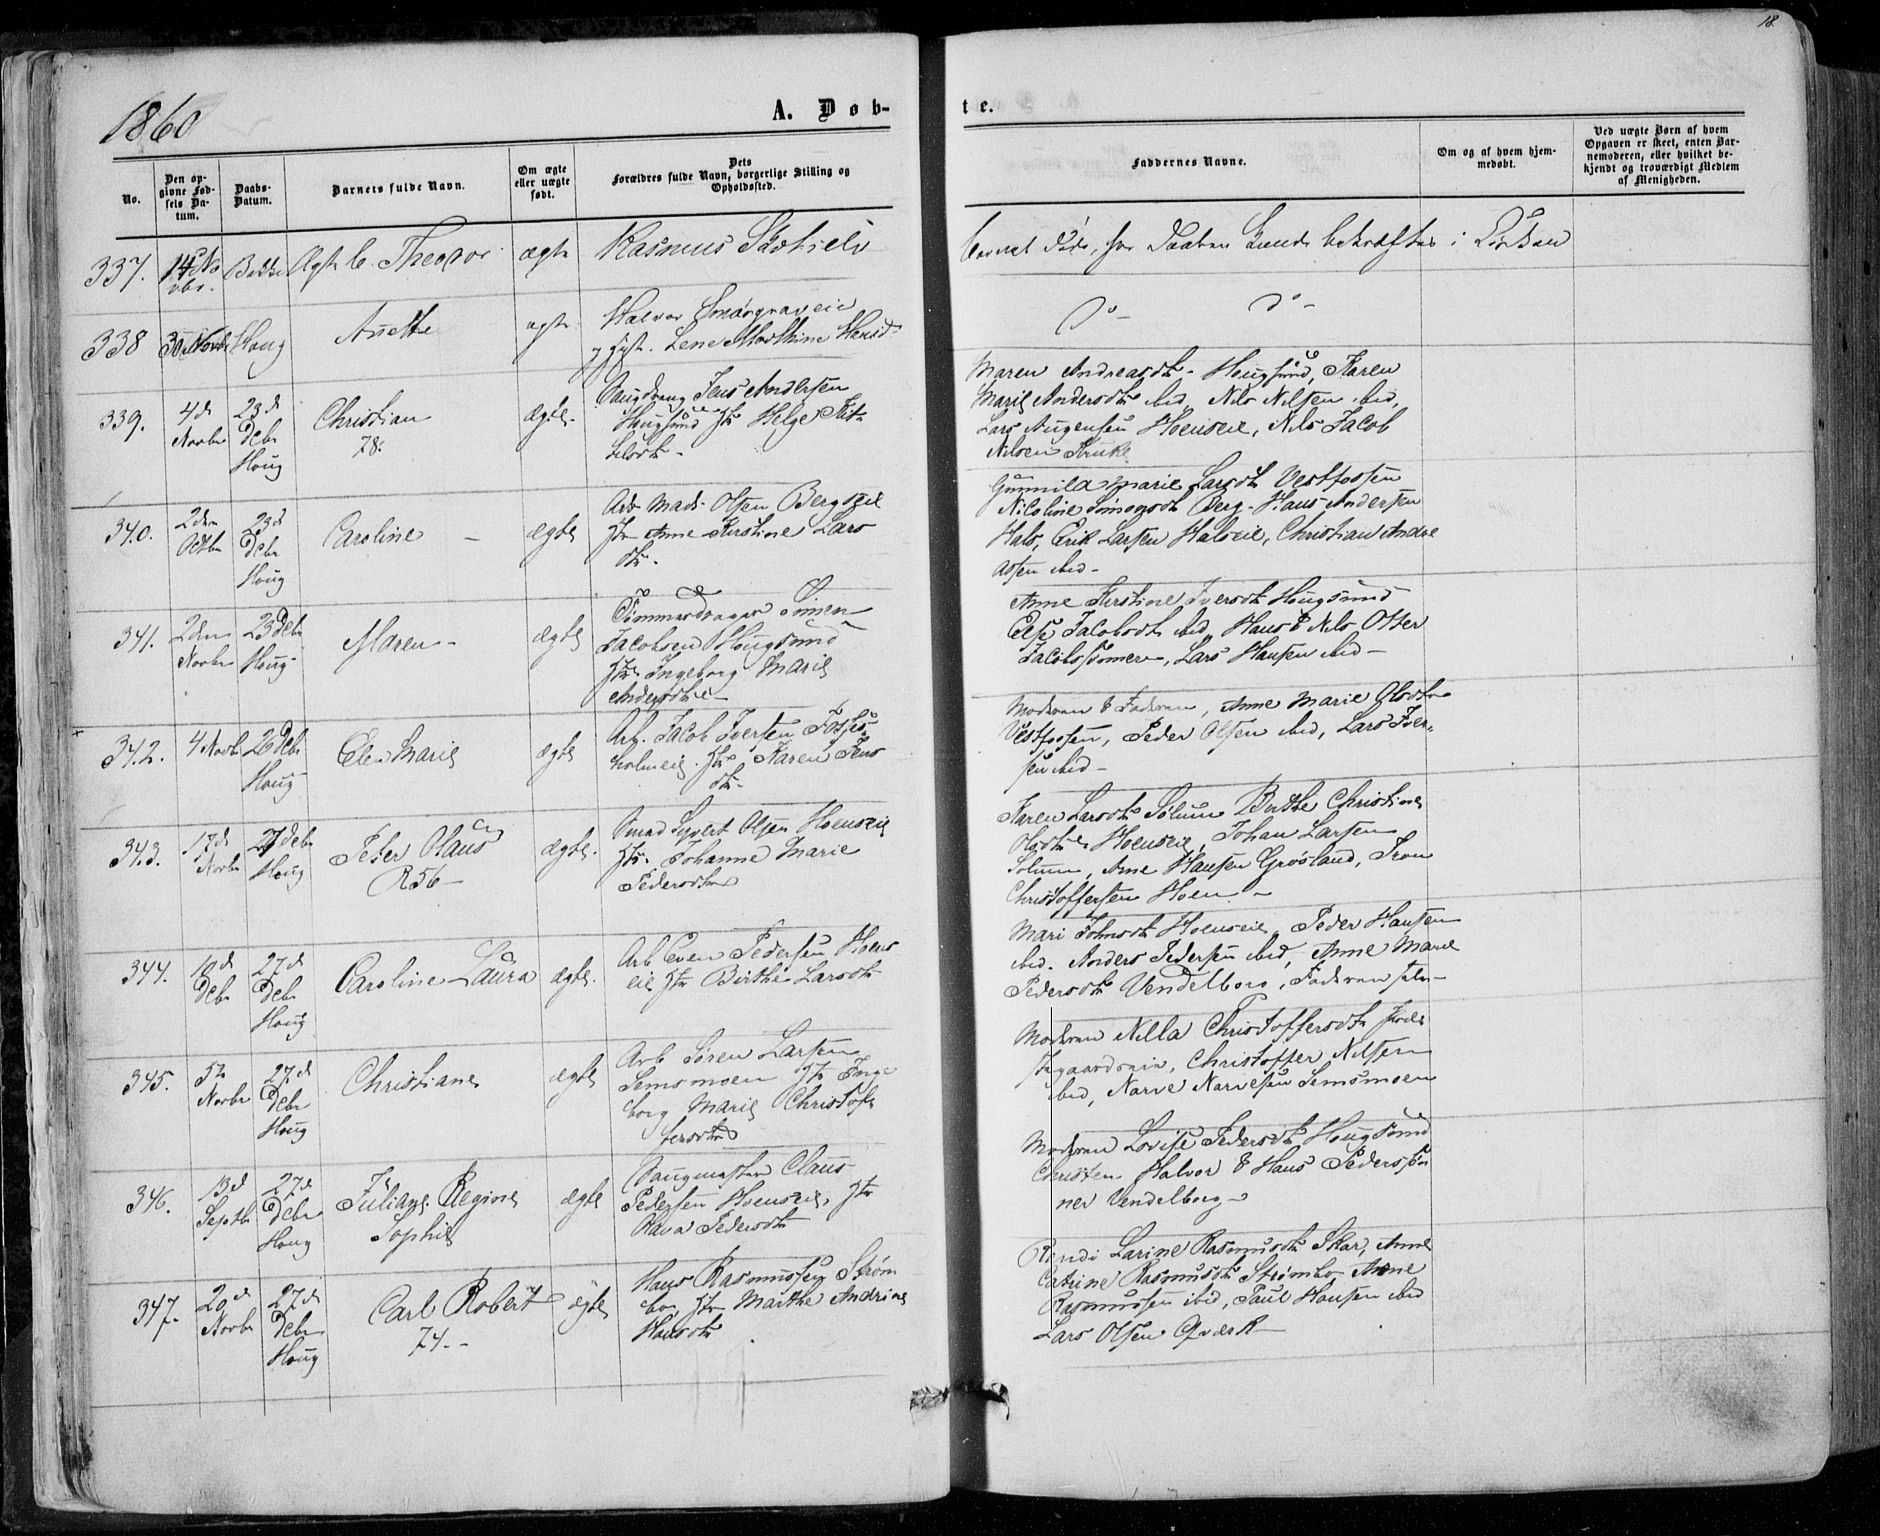 18.
1860
A. Døb-
te.
No.
Den op-
givne Fød-
sels Da-
tum.
Daabs-
Datum.
Barnets fulde Navn.
Om ægte
eller uægte
født.
Dets
Forældres fulde Navn, borgerlige Stilling og
Opholdssted.
Faddernes Navne.
Om og af hvem hjem-
medøbt.
Ved uægte Børn af hvem
Opgaven er skeet, enten Bar-
nemoderen, eller hvilket be-
kjendt og troværdigt Medlem
af Menigheden.
337.
Theodor
ægte
Rasmus
Barnet døde, før Daaben kunde bekræftes i Kirken
338
30 Novbr
Houg
Anette
ægte
Halvor Smørgraveie
Lene Marthine Hansd
Do
do
339.
4d
Novbr
23d
Debr
Houg
Christian
78.
ægte
Jens Andersen
Hougsund Htr Helge
Maren Andreasdtr Hougsund, Karen
Marie Andersdtr ibid, Nils Nilsen ibid,
Lars Hoenseie, Nils Jacob
Nilsen Kruke
340.
2den
Octbr
23d
Debr
Houg
Caroline
ægte
Arb Mads Olsen Bergseie
Htr Anne Kirstine Lars
dtr.
Gunnild Marie Larsdt Vestfossen
Nicoline Simensdt Berg. Hans Andersen
Hals, Erik Larsen Halseie, Christian Andre
assen ibid
341.
2den
Novbr
23 Debr
Houg
Maren
ægte
Tømmerdrager Simen
Jacobsen Hougsund
Htr Ingeborg Marie
Andersdtr
Anne Kirstine Iversdt Hougsund
Else Jacobsdt ibid, Hans & Nils Otter
Jacobssønner, Lars Hansen ibid
342.
4 Novbr
26 Debr
Houg
Elen Marie
ægte
Arb. Jacob Iversen Fosjes
holmeie. Htr Karen Jens
dtr.
Moderen & Faderen, Anne Marie Olsdtr
Vestfossen, Peder Olsen ibid, Lars Iver-
sen ibid
343.
17d
Novbr
27 Debr
Houg
Peter Olaus
R56
ægte.
Smed Syvert Olsen Hoenseie
Htr. Johanne Marie
Pedersdtr
Karen Larsdt Solum Berthe Christine
Olsdtr Hoenseie, Johan Larsen
Solum, Arne Hansen Grøsland, Tron
Christoffersen Hoen
344.
10d
Debr
27d
Debr
Houg
Caroline Laura
ægte.
Arb Even Pedersen Hoens
eie Htr Berthe Larsdt
Mari Johnsdt Hoenseie, Peder Hansen
ibid. Anders Pedersen ibid, Anne Marie
Pedersdt Vendelborg, Faderen selv
345.
5te
Novbr
27d
Debr
Houg
Christiane
ægte
Arb Søren Larsen
Semsmoen Htr Inge
borg Marie Christof
fersdtr
Moderen Nilla Christoffersdt
Christoffer Nilsen
ibid, Narve Narvesen Semsmoen
346.
13d
Septbr
27d
Debr
Houg
Juliane Regine
Sophie
ægte
Saugmester Claus
Pedersen Hoenseie, Htr
Pedersdt
Moderen Lovise Pedersdt Hougsund
Christen Halvor & Hans Pederssøn
ner Vendelborg
347.
20d
Novbr
27d
Debr
Houg
Carl Robert
74.
ægte
Hans Rasmussen Strøm
bo Htr Marthe Andrine
Hansdt
Randi Larine Rasmusdt Skar, Anne
Catrine Rasmusdt Strømbo Arne
Rasmussen ibid, Paul Hansen ibid
Lars Olsen Qværk